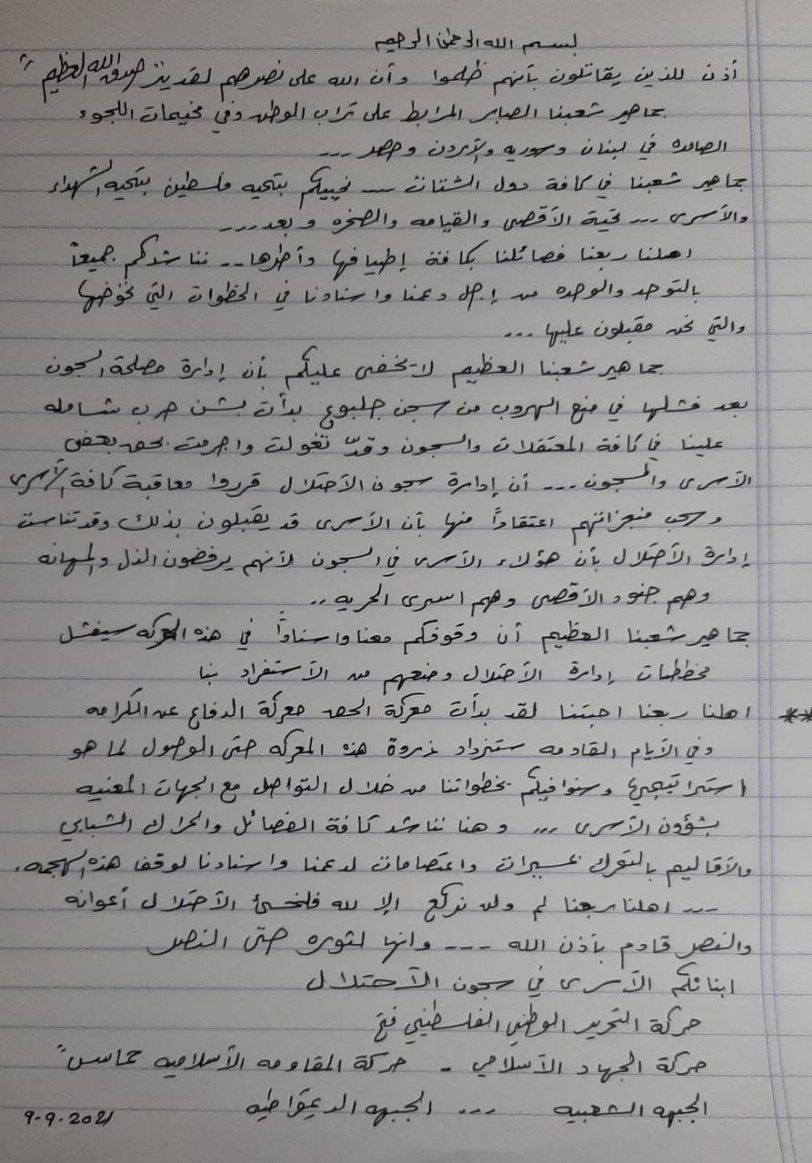 بسم الله الرحمن الرحيم
أذن للذين يقاتلون بأنهم ظلموا وأن الله على نصرهم لقدير صدق الله العظيم "
جماهير شعبنا الصابر المرابط على تراب الوطن وفي مخيمات اللجوء
الصامده في لبنان وسوريه والأردن ومصر ...
جماهير شعبنا في كافة دول الشتات ... نحييكم بتحيه فلسطين بتحيه الشهداء
والأسرى ... تحية الأقصى والقيامه والصخره وبعد ....
اهلنا ربعنا فصائلنا بكافة إطيافها وأطرها .. نناشدكم جميعاً
بالتوحد والوحده من إجل دعمنا واسنادنا في الخطوات التي نخوضها
والتي نحن مقبلون عليها ...
جماهير شعبنا العظيم لا يخفى عليكم بأن إدارة مصلحة السجون
بعد فشلها في منع الهروب من سجن جلبوع بدأت بشن حرب شامله
علينا في كافة المعتقلات والسجون وقد تغولت واجرمت بحق بعض
الأسرى والسجون ... أن إدارة سجون الأحتلال قرروا معاقبة كافة الأسرى
وسحب منجزاتهم اعتقاداً منها بأن الأسرى قد يقبلون بذلك وقد تناست
إدارة الأحتلال بأن هؤلاء الأسرى في السجون لأنهم يرفضون الذل والمهانه
وهم جنود الأقصى وهم اسرى الحريه ..
جماهير شعبنا العظيم أن وقوفكم معنا واسناداً في هذه المعركه سيفشل
مخططات إدارة الأحتلال ومنعهم من الأستفراد بنا
** اهلنا ربعنا احبتنا لقد بدأت معركة الحسم معركة الدفاع عن الكرامه
وفي الأيام القادمه ستزداد ذروة هذه المعركه حتى الوصول لما هو
استراتيجي وسنوافيكم بخطواتنا من خلال التواصل مع الجهات المعنيه
بشؤون الأسرى ... وهنا نناشد كافة الفصائل والحراك الشبابي
والأقاليم بالتحرك بمسيرات واعتصامات لدعمنا واسنادنا لوقف هذه الهجمه.
... اهلنا ربعنا لم ولن نركع إلا لله فلخسئ الأحتلال أعوانه
والنصر قادم بأذن الله ... وانها لثوره حتى النصر
ابنائكم الأسرى في سجون الأحتلال
حركة التحرير الوطني الفلسطيني فتح
حركة الجهاد الأسلامي - حركة المقاومه الأسلاميه حماس"
الجبهه الشعبيه ... الجبهه الديمقراطيه
9-9-2021